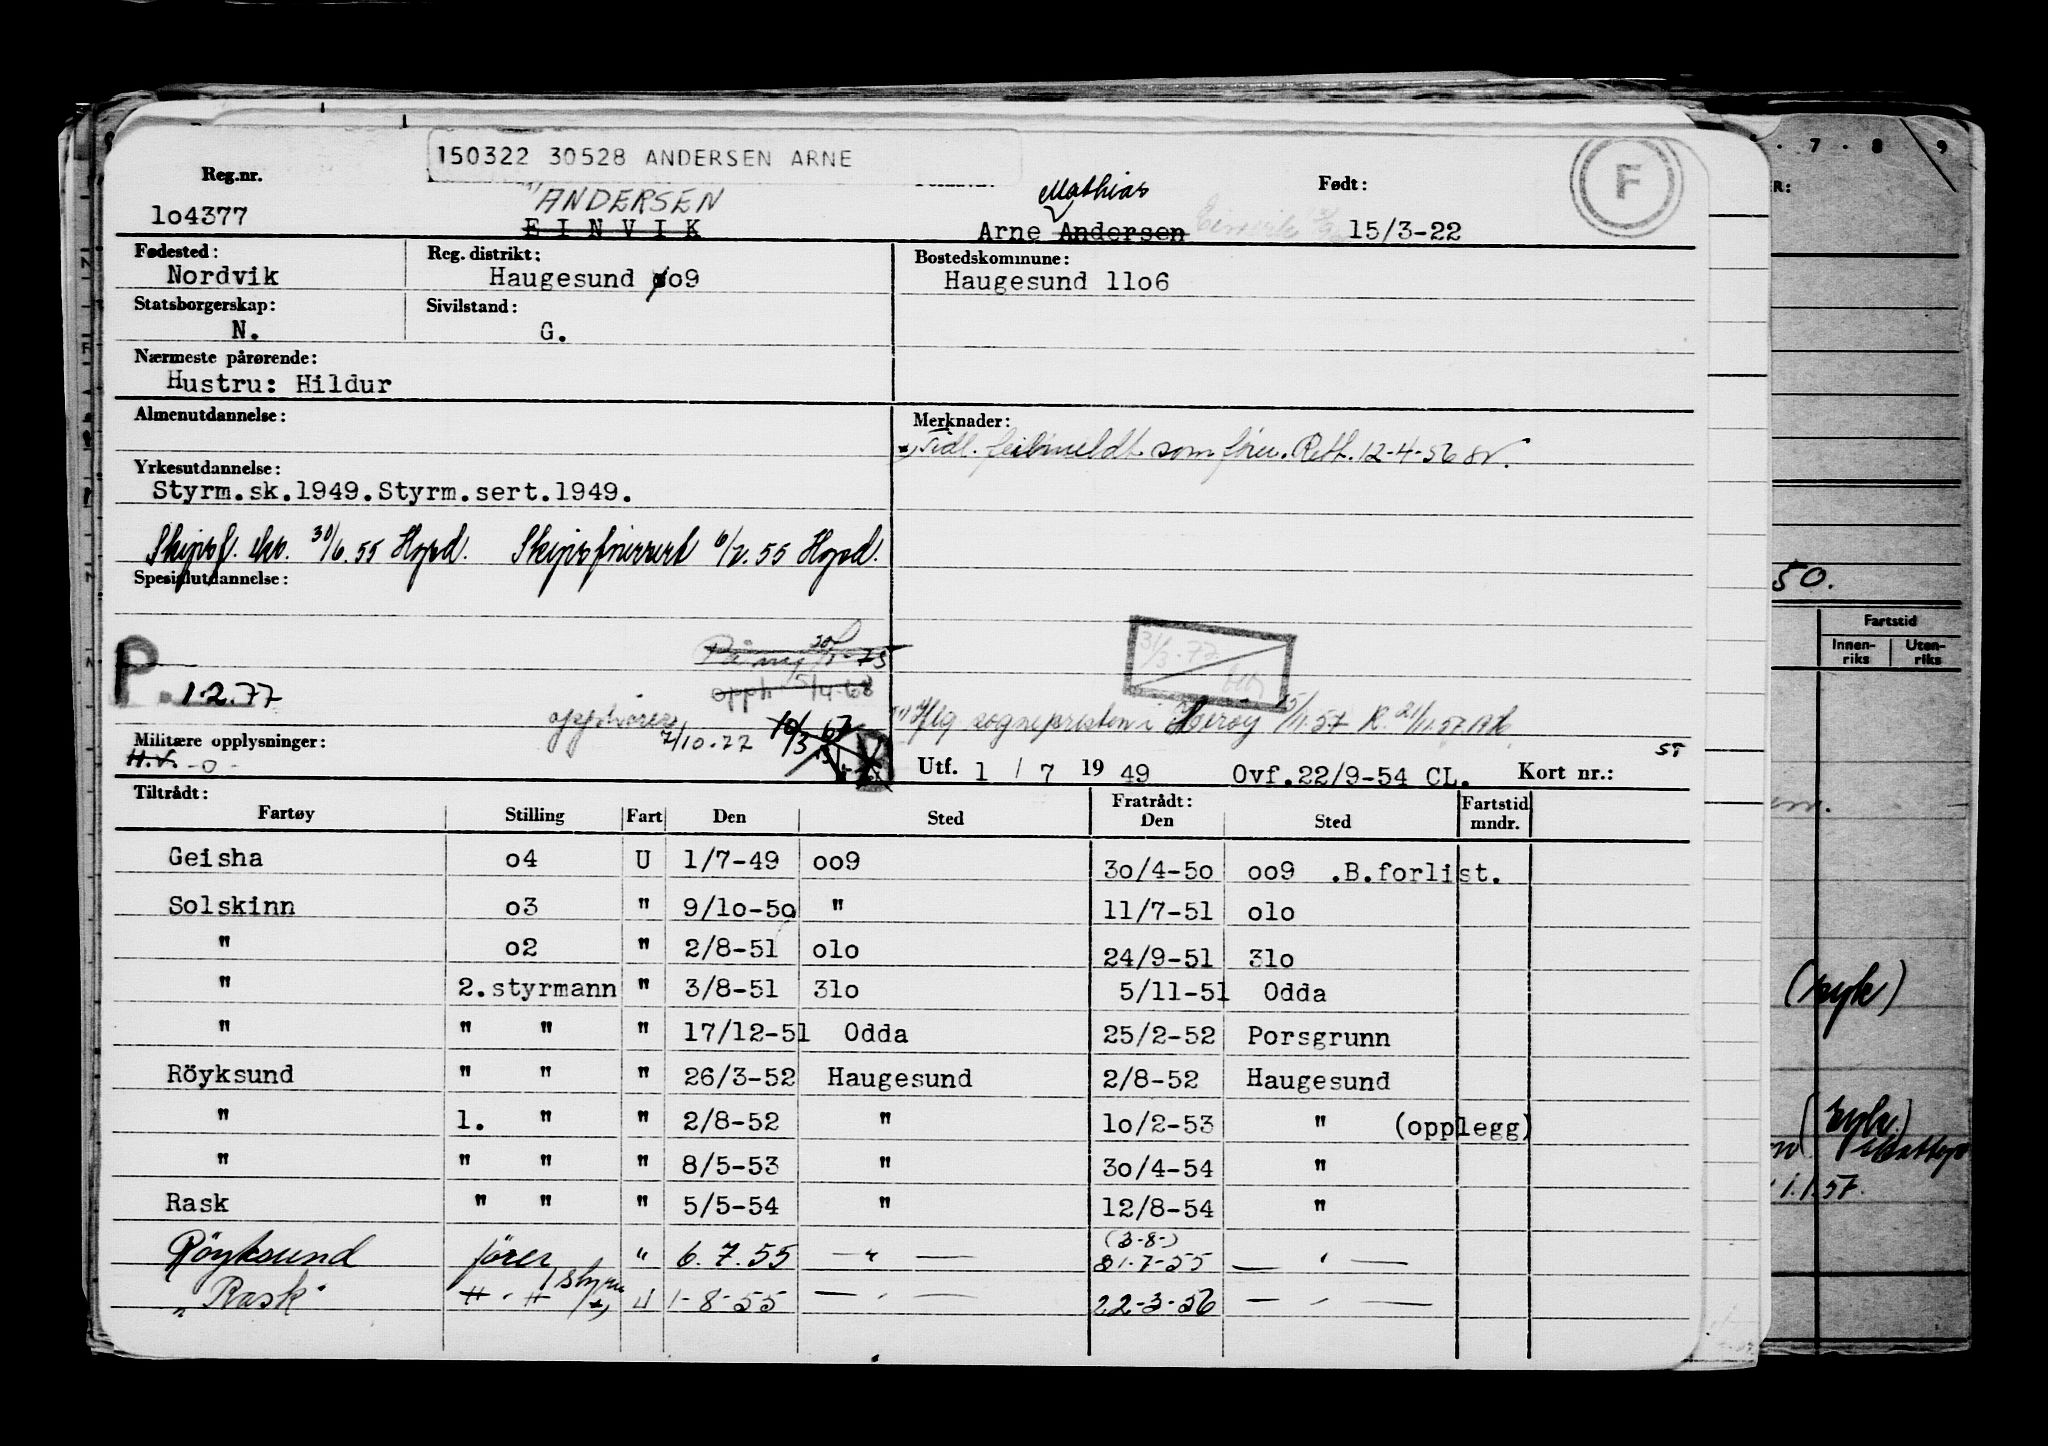 150322 30528 ANDERSEN ARNE
Reg.nr.
Født:
F
ANDERSEN
Mathias
lo4377
EINVIK
Arne Andersen Einvik 15/3-22
Fødested: Reg. distrikt: Bostedskommune:
Nordvik Haugesund oo9 Haugesund llo6
Statsborgerskap: Sivilstand:
N. G.
Nærmeste pårørende:
Hustru: Hildur
Almenutdannelse: Merknader:
x) Tidl. feilmeldt som fører. Rett. 12-4-56
Yrkesutdannelse:
Styrm.sk.1949.Styrm.sert.1949.
Skipsf. eks. 30/6.55 Hgsd. Skipsførersert 6/7.55 Hgsd.
Spesialutdannelse:
P. 1.2.77
På ny -75
opph. 5/4-68
31/3-77
opphører 7/10-77
10/3 67
Iflg sognepresten i Herøy 15/11.57 R. 21/11.57
Militære opplysninger:
H.V. -o-
ST
Utf. 1 / 7 19 49 Ovf.22/9-54 CL. Kort nr.:
Tiltrådt: Fratrådt: Fartstid mndr.
Fartøy Stilling Fart Den Sted Den Sted
Geisha o4 U 1/7-49 oo9 3o/4-5o oo9 .B.forlist.
Solskinn o3 " 9/lo-5o " 11/7-51 olo
" o2 " 2/8-51 olo 24/9-51 3lo
" 2.styrmann " 3/8-51 3lo 5/11-51 Odda
" " " " 17/12-51 Odda 25/2-52 Porsgrunn
Röyksund " " " 26/3-52 Haugesund 2/8-52 Haugesund
" 1. " " 2/8-52 " lo/2-53 " (opplegg)
" " " " 8/5-53 " 3o/4-54 "
Rask " " " 5/5-54 " 12/8-54 "
(3-8-)
Röyksund fører " 6.7.55 — " — 31.7-55 — " —
"Rask" " - " 1 styrm x) U 1-8-55 — " — 22-3-56 — " —
7 . 8 . 9
R:
50.
Fartstid
Innen-riks Uten-riks
1.1.57.